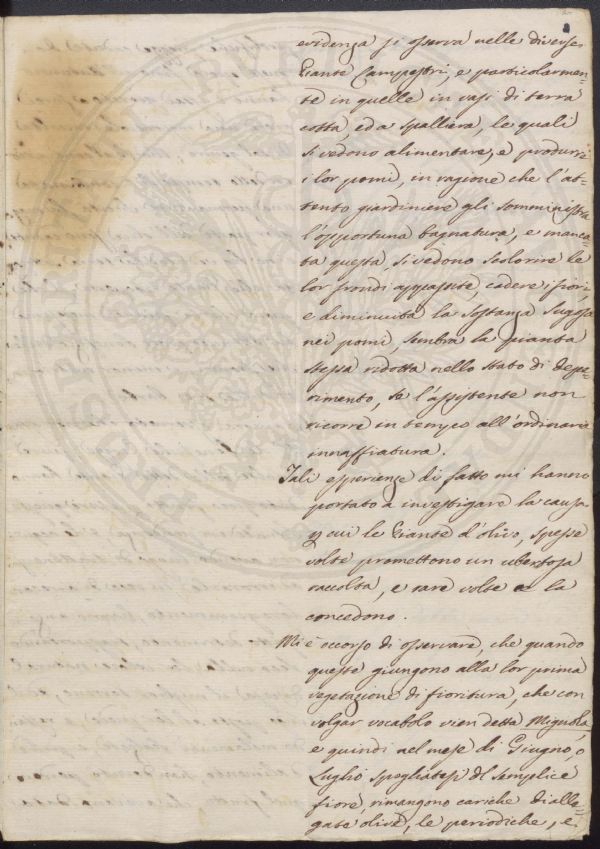 evidenza si osserva nelle diverse
Piante Campestri, e particolarmen=
te in quelle in vasi di terra
cotta, ed a spalliera, le quali
si vedono alimentare, e produrre
i lor pomi, in ragione che l'at=
tento giardiniere gli somministra
l'opportuna bagnatura, e manca=
ta questa, si vedono scolorire le
lor frondi appassite, cadere i fiori,
e diminuita la sostanza sugosa
nei pomi, sembra la pianta
stessa ridotta nello stato di depe=
rimento, se l'assistente non
ricorre in tempo all'ordinaria
innaffiatura.
Tali esperienze di fatto mi hanno
portato a investigare la causa
p cui le Piante d'olivo, spesse
volte promettono un ubertosa
raccolta, e rare volte la
concedono.
Mi è occorso di osservare, che quando
queste giungono alla lor prima
vegetazione di fioritura, che con
volgar vocabolo vien detta Mignola,
e quindi nel mese di Giugno, o
Luglio spogliatesi dl semplice
fiore, rimangono cariche di alle=
gate olive, le periodiche, e